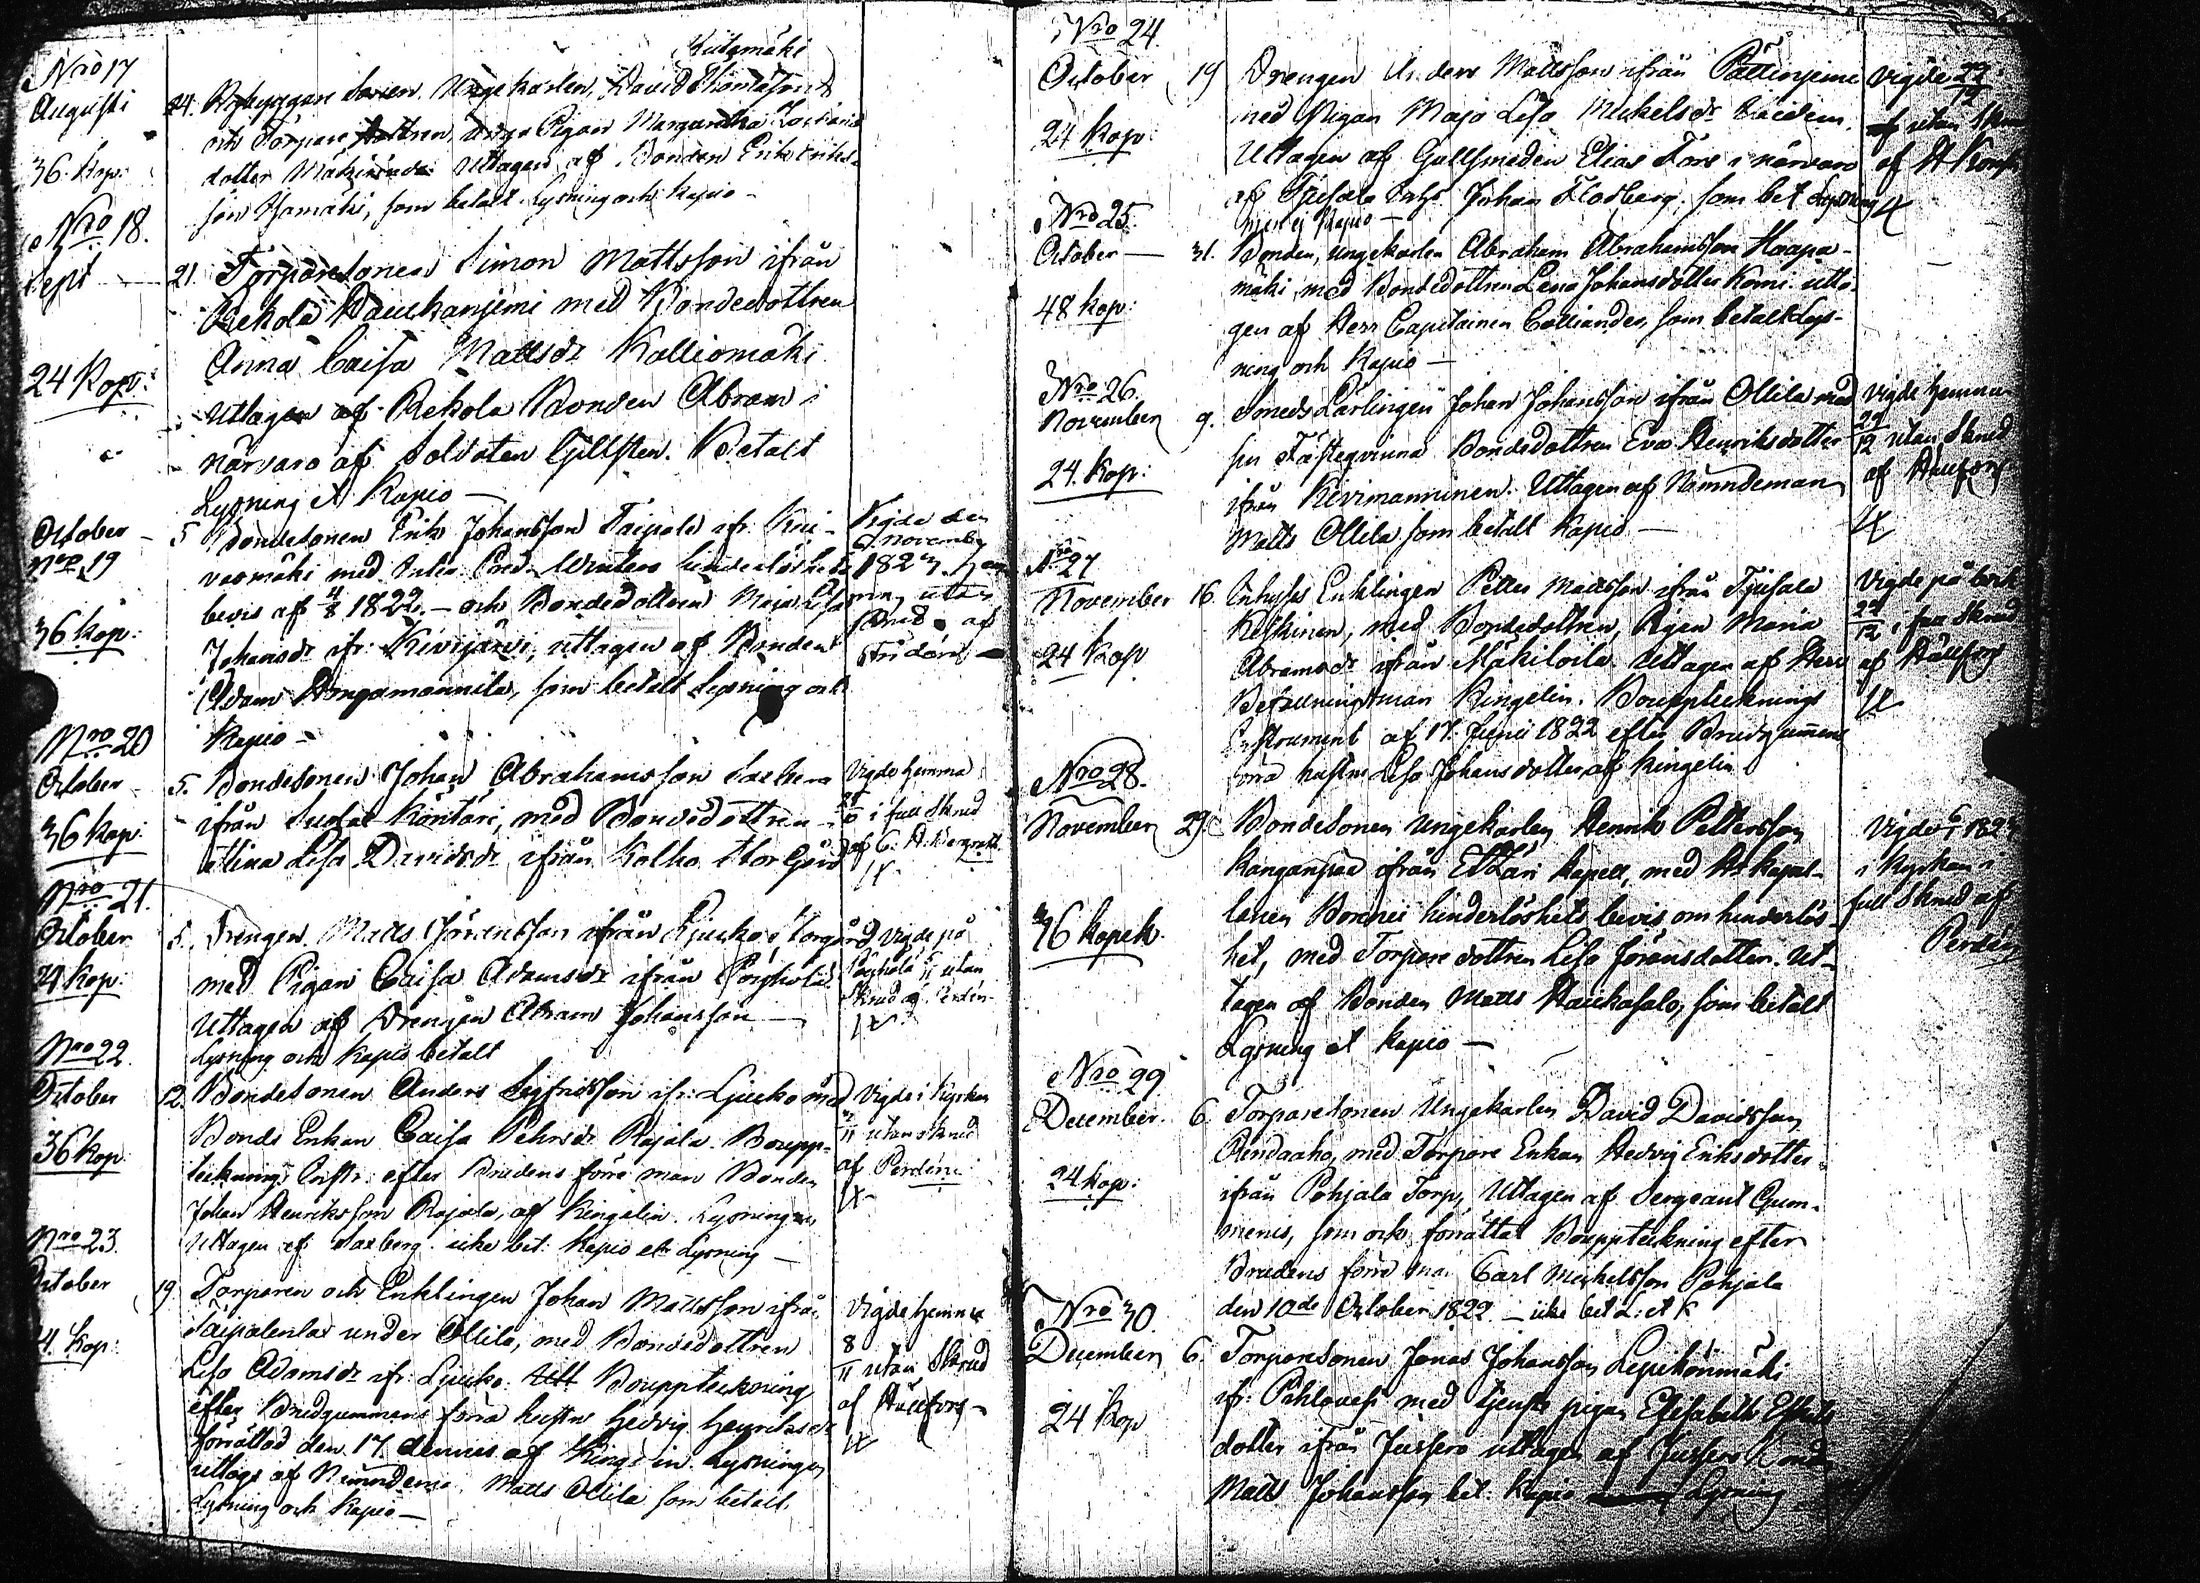 Nro 17
Augusti
36. Kop:
24. Nybyggare Sonen Ungekarlen, David Thomasson
Kutemäki
och Torpare dottren, Pigan Margaretha
dotter Uttagen af Bonden Erik Eriks-
son som betalt Lysning och Kapio –
Nro 18.
Sept
24 Kop:
21. Torparesonen Simon Mattsson ifrån
Rekola Haukaniemi med Bondedottren
Anna Caisa Mattsdr Kalliomäki
Uttagen af Rekola Bonden Abram i
närvaro af Soldaten Gillsten. Betalt
Lysning et Kapio –
October
Nro 19
36 kop:
5 Bondesonen Erik Johansson Taipale ifr. Kui-
vasmäki med hinderlöshets
bevis af 4/8 1822. – och Bondedottren Maja Lisa
Johansdr ifr: Kivijärvi, uttagen af Bonden
Adam Hongamannila, som betalt Lysning och
Kapio –
Vigde den
6 novemb
1823. hem
ma, utan
skrud af
Nro 20
October
36 kop:
5. Bondesonen Johan Abrahamsson
ifrån Köntäri, med Bondedottren
Stina Lisa Davidsdr ifrån Kolho Storgård
Vigde hemma
i full Skrud
af C. H. Bergroth
Nro 21.
October
24 kop:
5. Drengen Matts Jöransson ifrån Ljuko Storgård
med Pigan Caisa Adamsdr ifrån Pöyhölä
Uttagen af Drengen Abram Johansson –
Lysning och Kapio betalt
vigde på
Pöyhölä utan
Skrud af Perdén
Nro 22
October
36 kop
12. Bondesonen Anders Sigfridsson ifr: Ljuko med
Bonde Enkan Caisa Pehrsdr Rajala. Boupp-
tecknings Instr: efter Brudens förra man Bonden
Johan Henriksson Rajala, af Ringelin. Lysningen
Uttagen af Saxberg. icke bet: Kapio et Lysning –
Vigde i Kyrkan
utan skrud
af Perdén:
Nro 23.
October
4. Kop:
19 Torparen och Enklingen Johan Mattsson ifrån
Taipalenlax under Ollila, med Bondedottren
Lisa Adamsdr ifr: Ljuko. Utt Bouppteckning
efter Brudgummens förra hustru Hedvig Henriksdr
förrättad den 17 dennes af Ringelin. Lysningen
uttagen af Nämndeman Matts Ollila som betalt
Lysning och Kapio –
Vigde hemma
8
11 utan Skrud
af Hällfors –
Nro 24.
October
24 Kop:
19 Drengen Anders Mattsson ifrån Pättiniemi
med Pigan Maja Lisa Mickelsdr
Uttagen af Gullsmeden Elias Fors i närvaro
af Tjusala Johan Flodberg. som bet Lysning
men ej Kapio –
Vigde 29
12
utan Skrud
af H
Nro 25.
October –
48 kop:
31. Bonden, ungekarlen Abraham Abrahamsson Haapa-
mäki, med Bondedottren Lena Johansdotter Komi utta-
gen af Herr Capitainen Calliander, som betalt Lys-
ning och Kapio –
Nro 26.
November
24. Kop:
9. Smeds Lärlingen Johan Johansson ifrån Ollila med
sin Fästeqvinna Bondedottren Eva Henriksdotter
ifrån Kivimanninen. Uttagen af Nämndeman
Matts Ollila som betalt Kapio –
Vigde hemma
29
12 utan Skrud
af Hällfors
Nro 27
November
24 Kop
16. Inhyses Enklingen Petter Mattsson ifrån Tjusala
Keskinen, med Bondedottren, Pigan Maria
Abramsdr ifrån Mäkiloila Uttagen af Herr
Befallningsman Ringelin. Bouppteckningss
Instrument af 17. Junii 1822 efter Brudgummens
förra hustru Lisa Johansdotter af Ringelin
Vigde på
29
12 i full Skrud
af Hällfors
Nro 28.
November
36 kopek.
29. Bondesonen Ungekarlen Henrik Pettersson
Kangaspää ifrån Etzäri kapell, med Hr kapel-
lanen Bonnei hinderlöshets bevis, om hinderlös-
het, med Torpare dottren Lisa Jöransdotter. Ut-
tagen af Bonden Matts Haukasalo, som betalt
Lysning et Kapio –
Vigde 1823
i Kyrkan i
full Skrud af
Perdén
Nro 29
December.
24 kop:
6. Torparesonen Ungekarlen David Davidsson
Rendaaho, med Torpare Enkan Hedvig Eriksdotter
ifrån Pohjala Torp, Uttagen af Sergeant Gum-
merus, som och förrättat Bouppteckning efter
Brudens förra man Carl Michelsson Pohjala
den 10de October 1822. – icke bet L: et K
Nro 30.
December
24 Kop
6. Torparesonen Jonas Johansson Lepikönmäki
ifr: Pihlavesi med tjenste pigan Elisabeth
dotter ifrån Jussero uttagen af Jussero Bond
Matts Johansson bet. Kapio Lysning